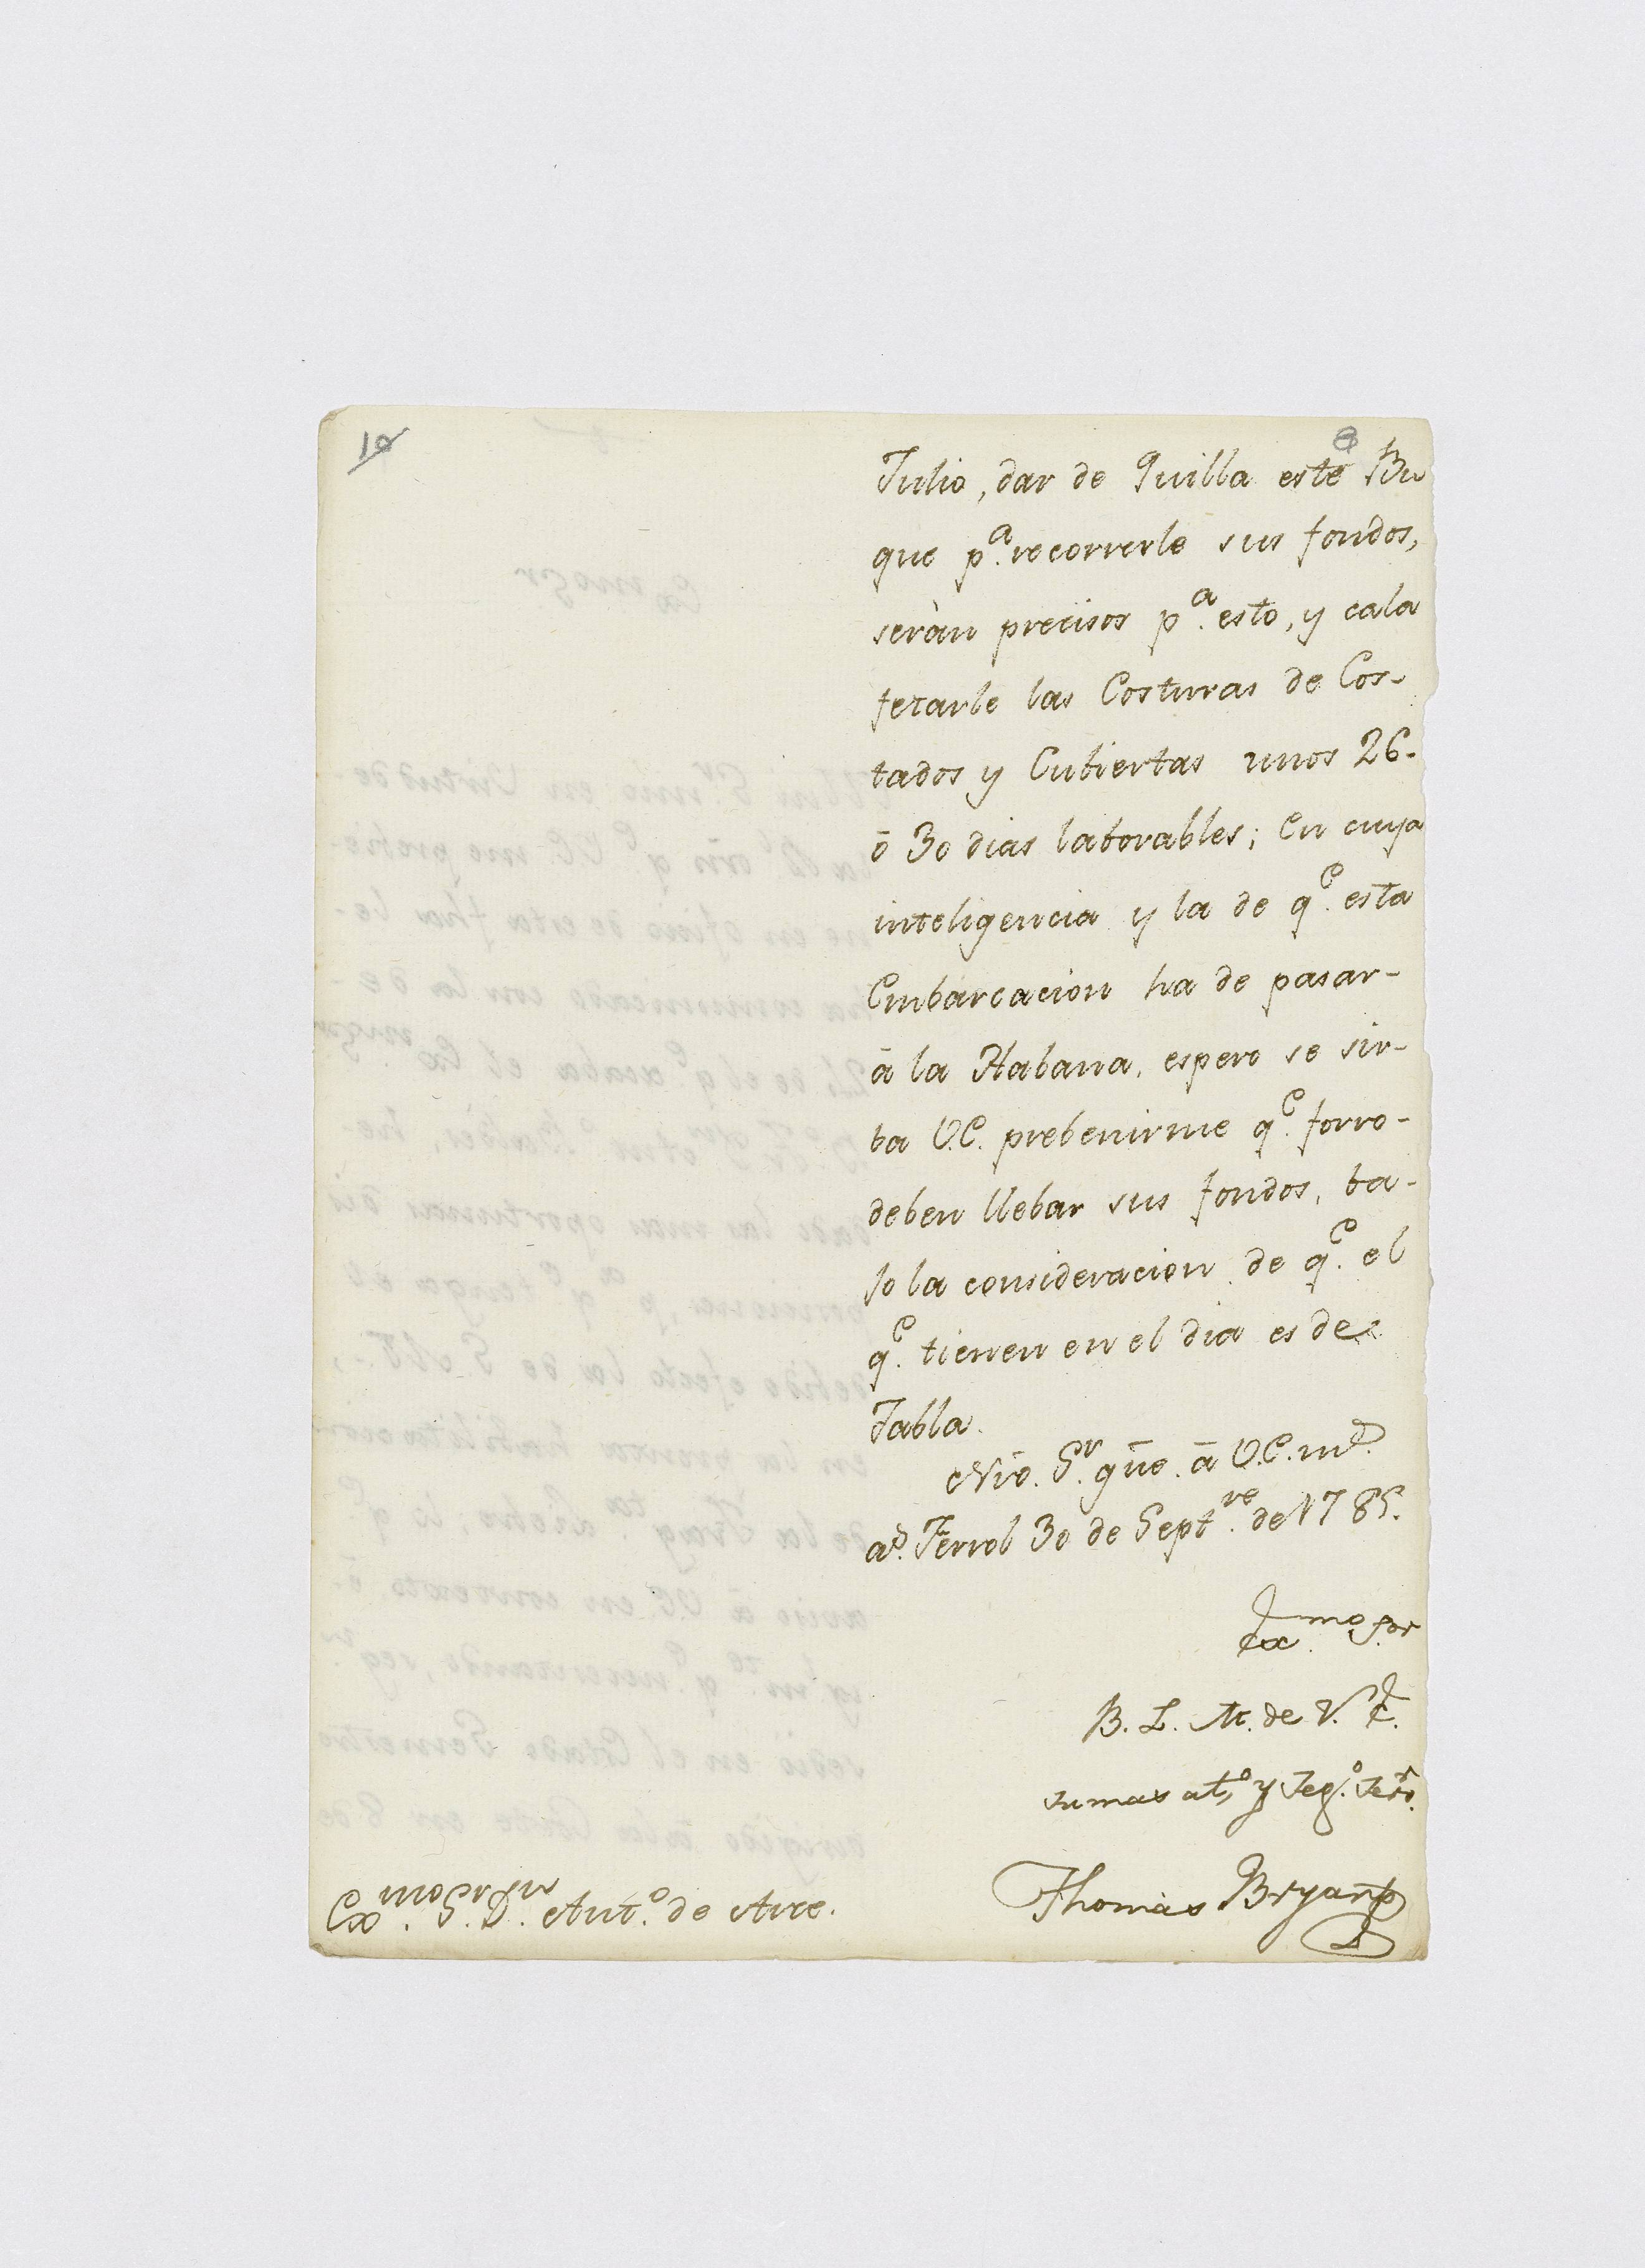 10
8
Julio, dar de Quilla este Bu
que p.ª recorrerle sus fondos,
seràn precisos p.ª esto, y cala
fetarle las Costuras de Cos-
tados y Cubiertas unos 26-
ō 30 dias laborables; En cuya
inteligencia y la de q.e esta
Embarcacion ha de pasar-
ā la Habana, espero se sir-
ba V.E. prebenirme q.e forro-
deben llebar sus fondos, ba-
jo la consideracion de q.e el
q.e tienen en el dia es de
Tabla.
Nrō. S.r gūe. ā V.E. m.s
a.s Ferrol 30 de Sept.re de 1785.
Ex.mo S.or
B. L. M. de V. E.
su mas at.o y seg.o ser.r
Thomàs Bryant
Ex.mo S.r D.n Ant.o de Arce.